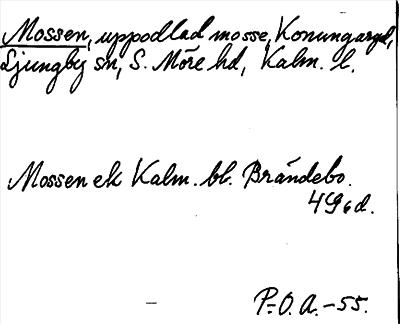 Mossen, uppodlad mosse, Konungaryd,
Ljungby sn, S. Möre hd, Kalm. l.
Mossen ek Kalm. bl. Brändebo.
4G6d.
P.O.A.-55.